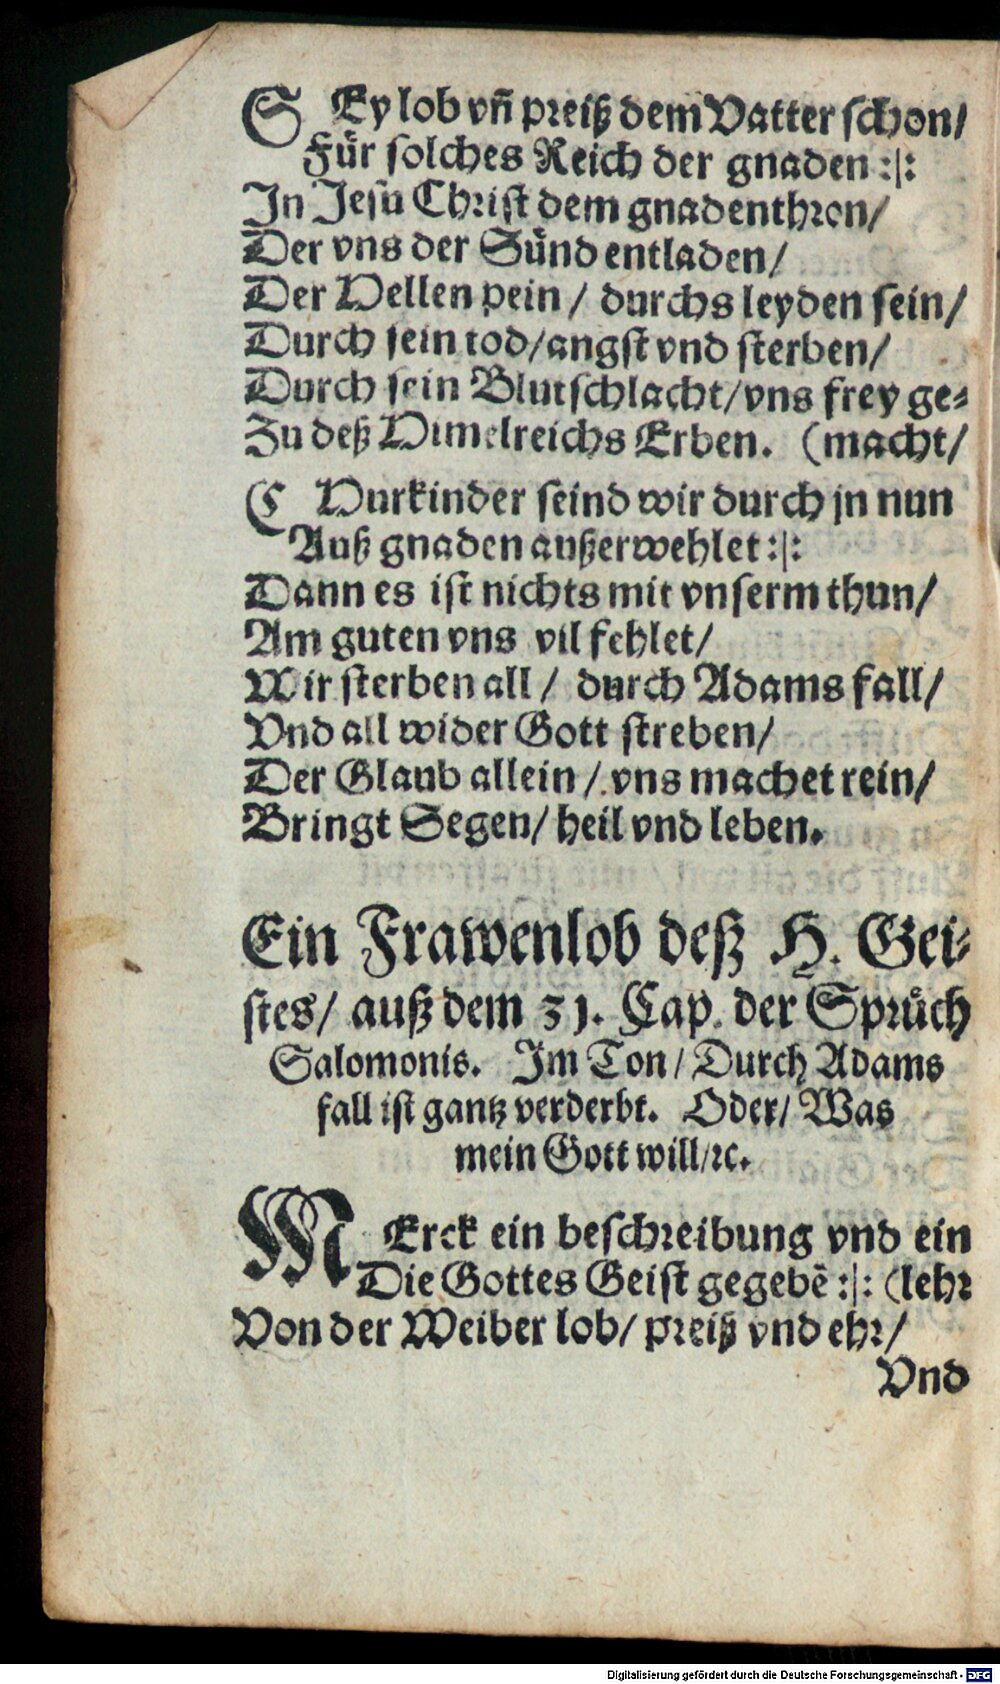 SEy lob vñ preiß dem Vatter schon/
Für solches Reich der gnaden :|:
In Jesu Christ dem gnadenthron/
Der vns der Sünd entladen/
Der Hellen pein / durchs leyden sein/
Durch sein tod/angst vnd sterben/
Durch sein Blutschlacht/vns frey ge⸗
Zu deß Himelreichs Erben. (macht/
C Hurkinder seind wir durch jn nun
Auß gnaden außerwehlet :|:
Dann es ist nichts mit vnserm thun/
Am guten vns vil fehlet/
Wir sterben all / durch Adams fall/
Vnd all wider Gott streben/
Der Glaub allein / vns machet rein/
Bringt Segen/ heil vnd leben.
Ein Frawenlob deß H. Gei⸗
stes/ auß dem 31. Cap. der Sprüch
Salomonis. Im Ton/ Durch Adams
fall ist gantz verderbt. Oder/ Was
mein Gott will/ꝛc.
MErck ein beschreibung vnd ein
Die Gottes Geist gegebē :|: (lehr
Von der Weiber lob/ preiß vnd ehr/
Vnd
Digitalisierung gefördert durch die Deutsche Forschungsgemeinschaft - DFG